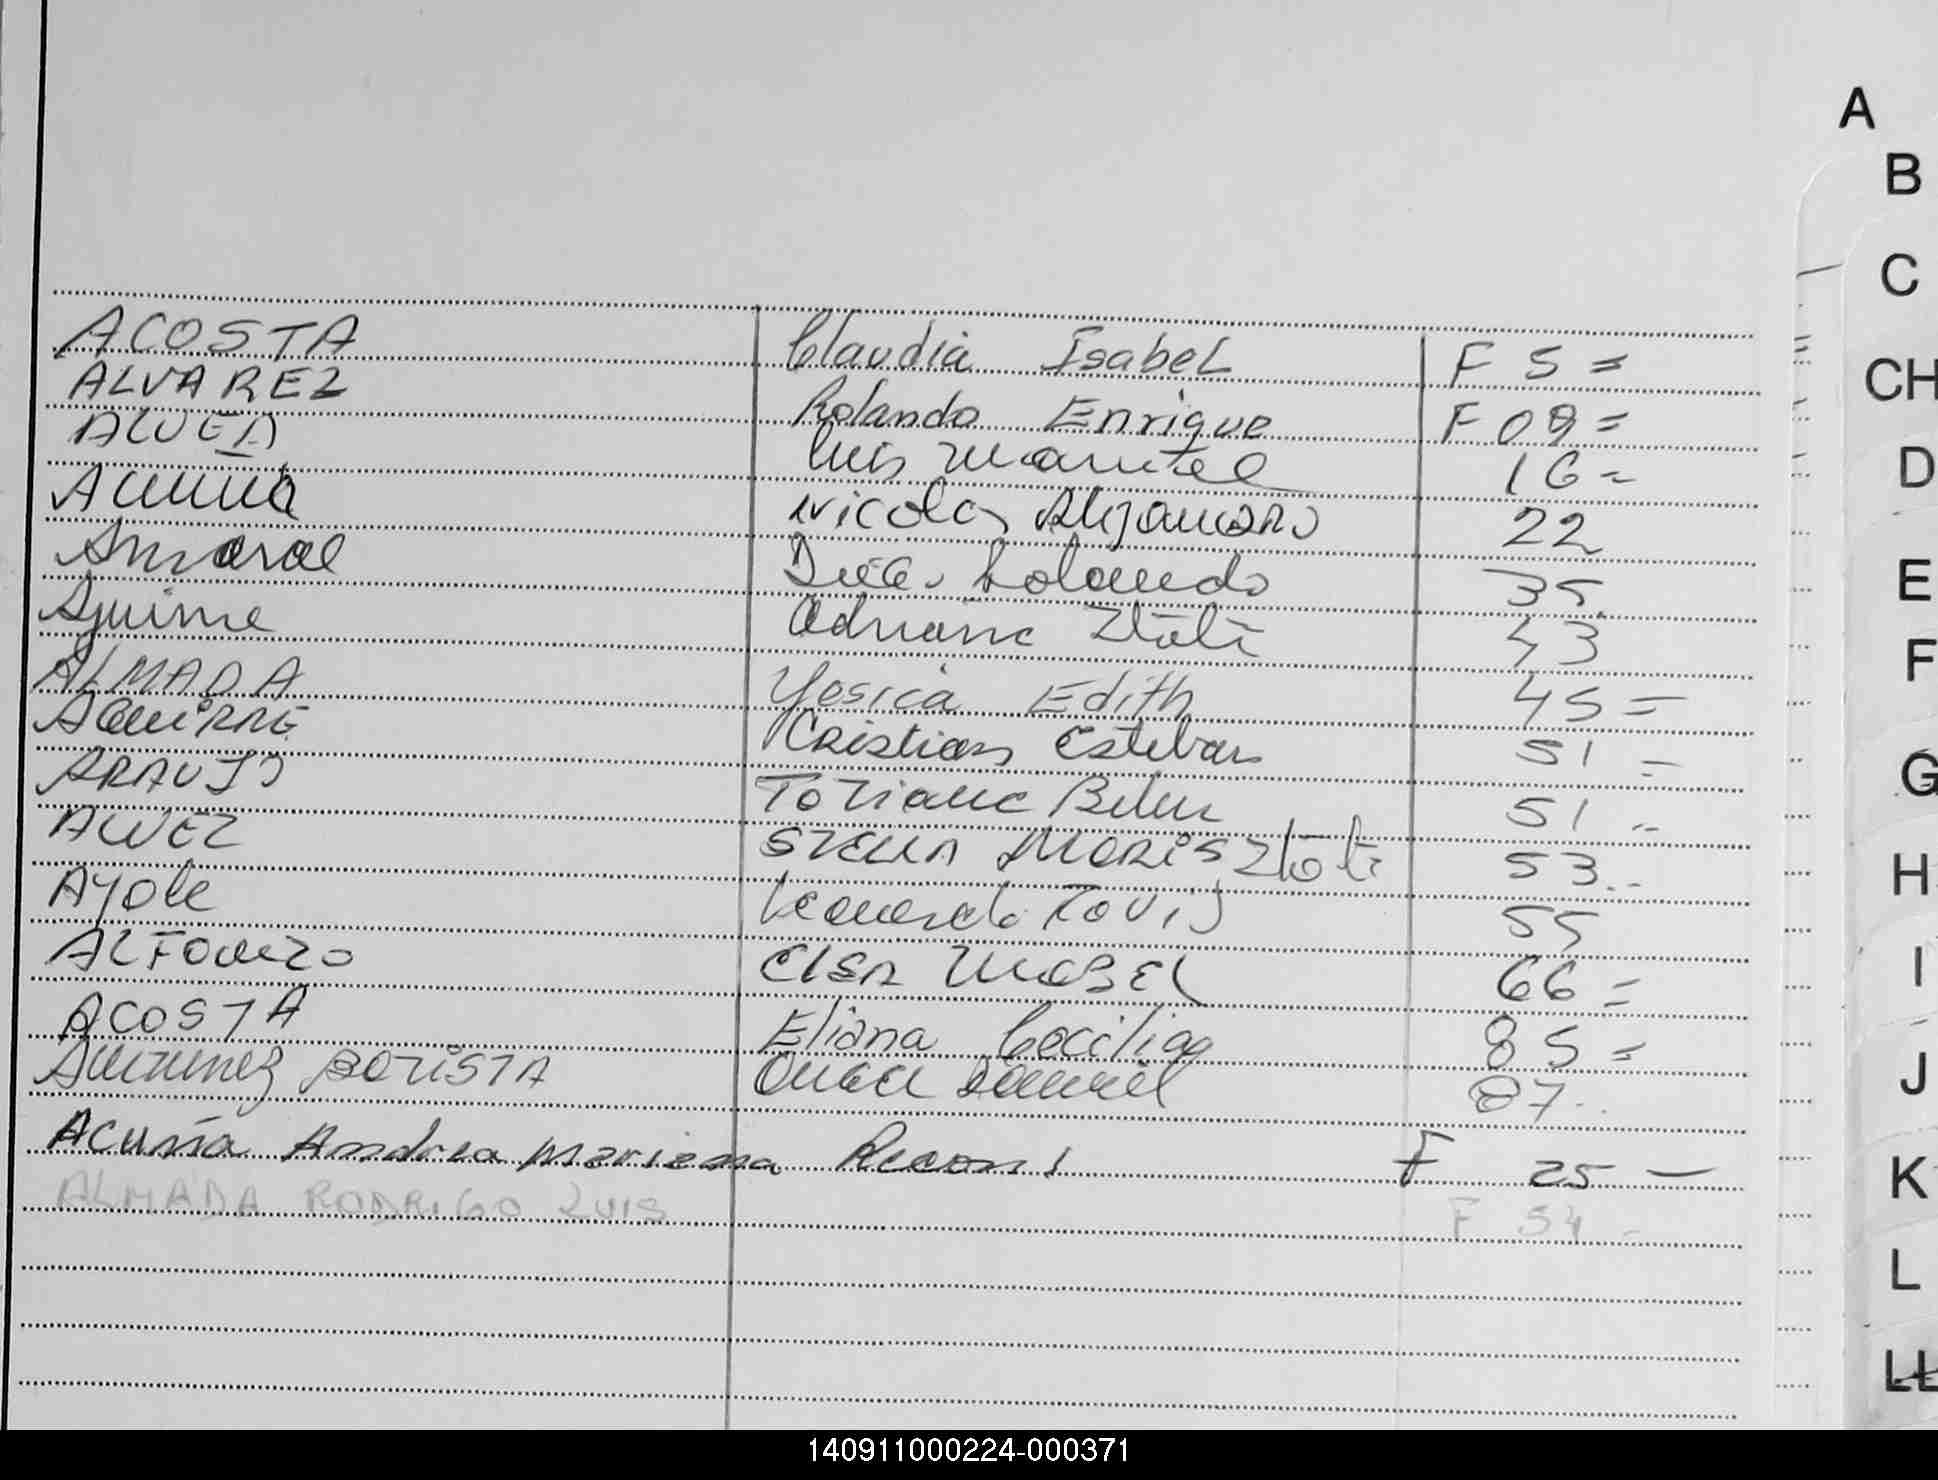 ACOSTA Claudia Isabel F 5 =
ALVAREZ Rolando Enrique F 09 =
Luis Manuel 16 =
Acuña Nicolas Alejandro 22
Amaral Rolando 35
Aguirre Adriana 43
ALMADA Yesica Edith 45 =
AGUIRRE Cristian Esteban 51 =
ARAUJO Tatiana Belen 51
STELLA MARIS 53
Ayala 55
ALFONZO ELSA MABEL 66 =
ACOSTA Eliana Cecilia 85 =
Daniel 87
Acuña Andrea Mariana F 25 —
ALMADA RODRIGO LUIS F 54 -
A
B
C
CH
D
E
F
G
H
I
J
K
L
LL
140911000224-000371